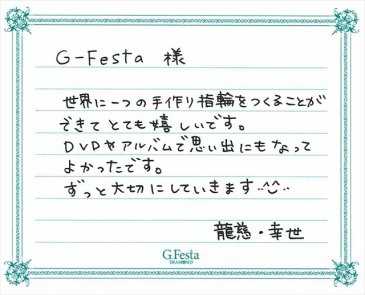 G-Festa 様
世界に一つの手作り指輪をつくることが
できてとても嬉しいです。
DVDやアルバムで思い出にもなって
よかったです。
ずっと大切にしていきます^^
龍慈・幸世
G.Festa
DIAMOND